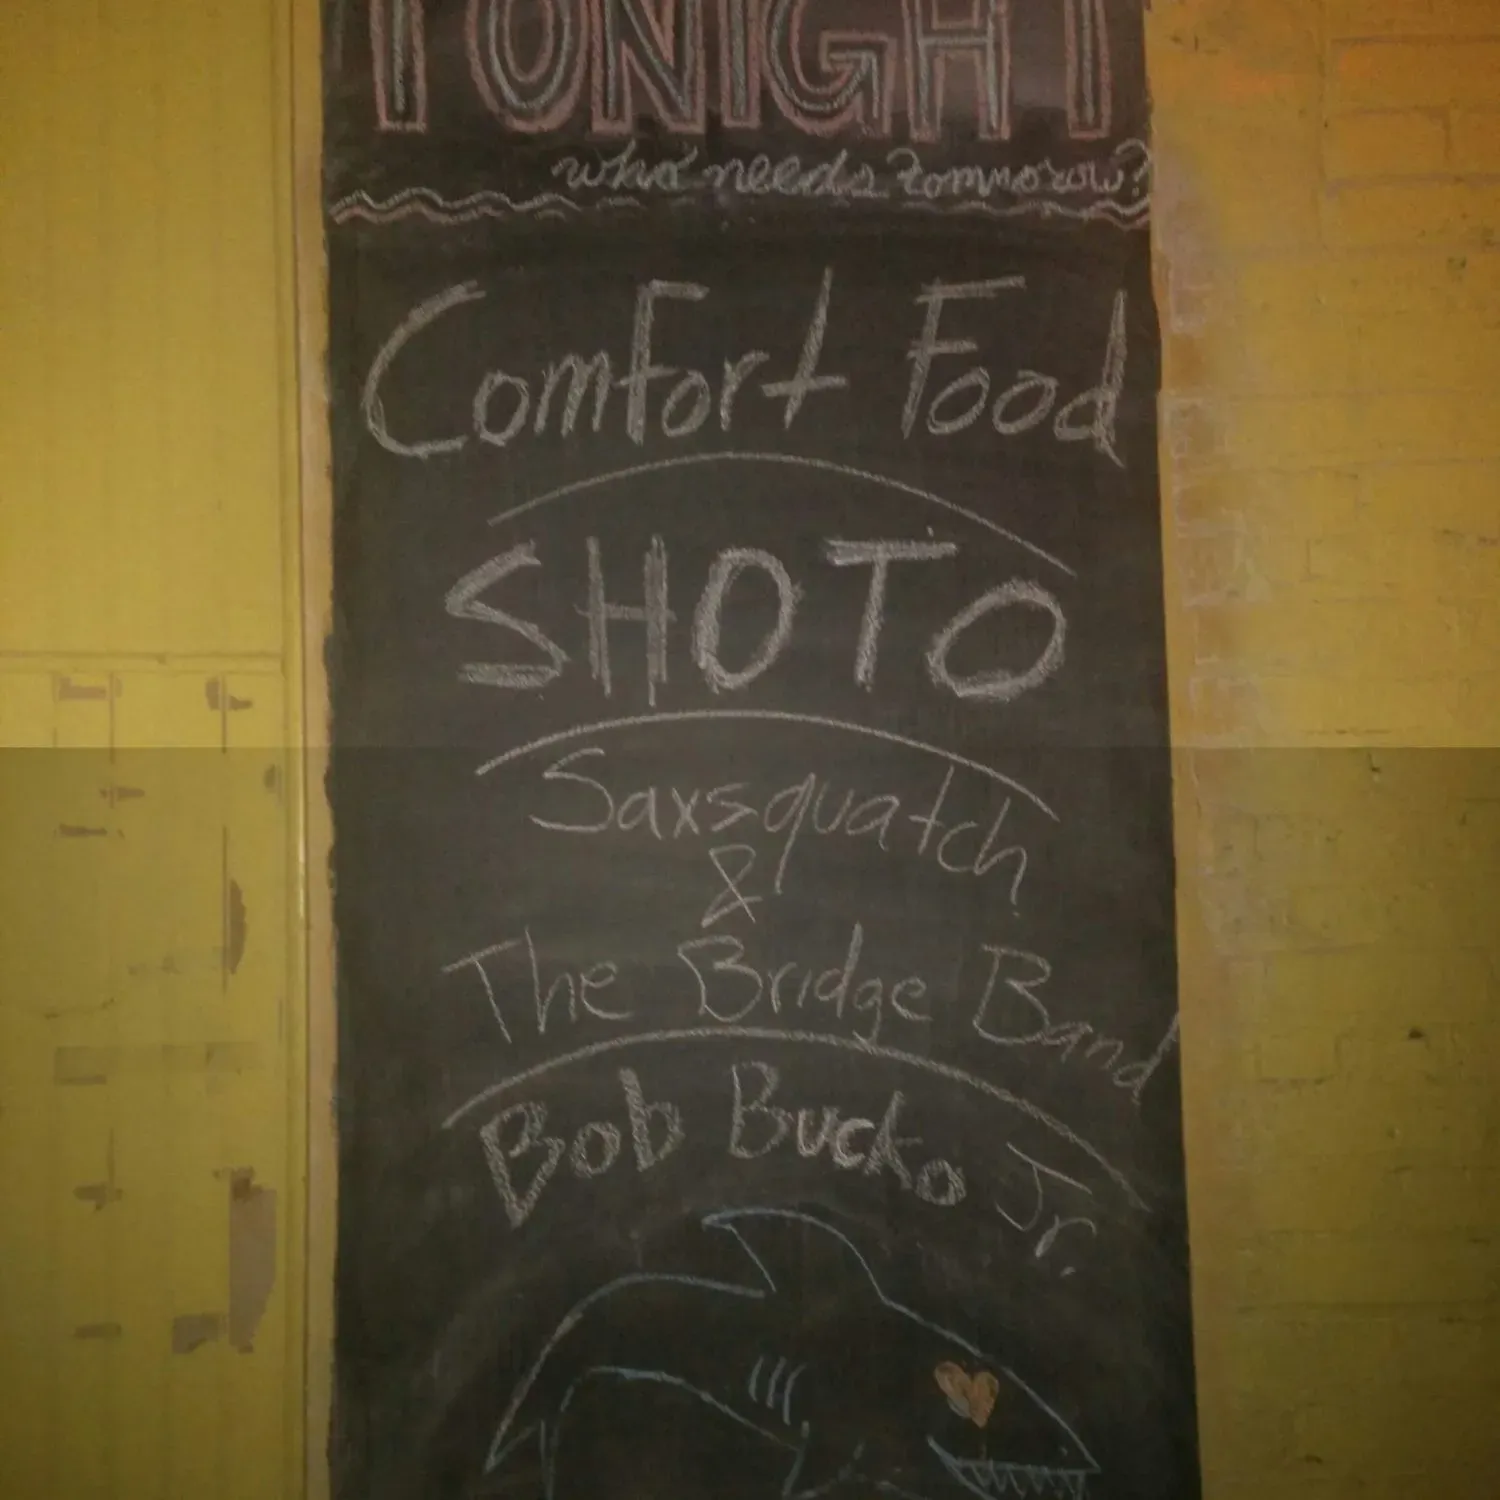 TONIGHT
who needs tomorrow?
Comfort Food
SHOTO
Saxsquatch
&
The Bridge Band
Bob Bucko Jr.